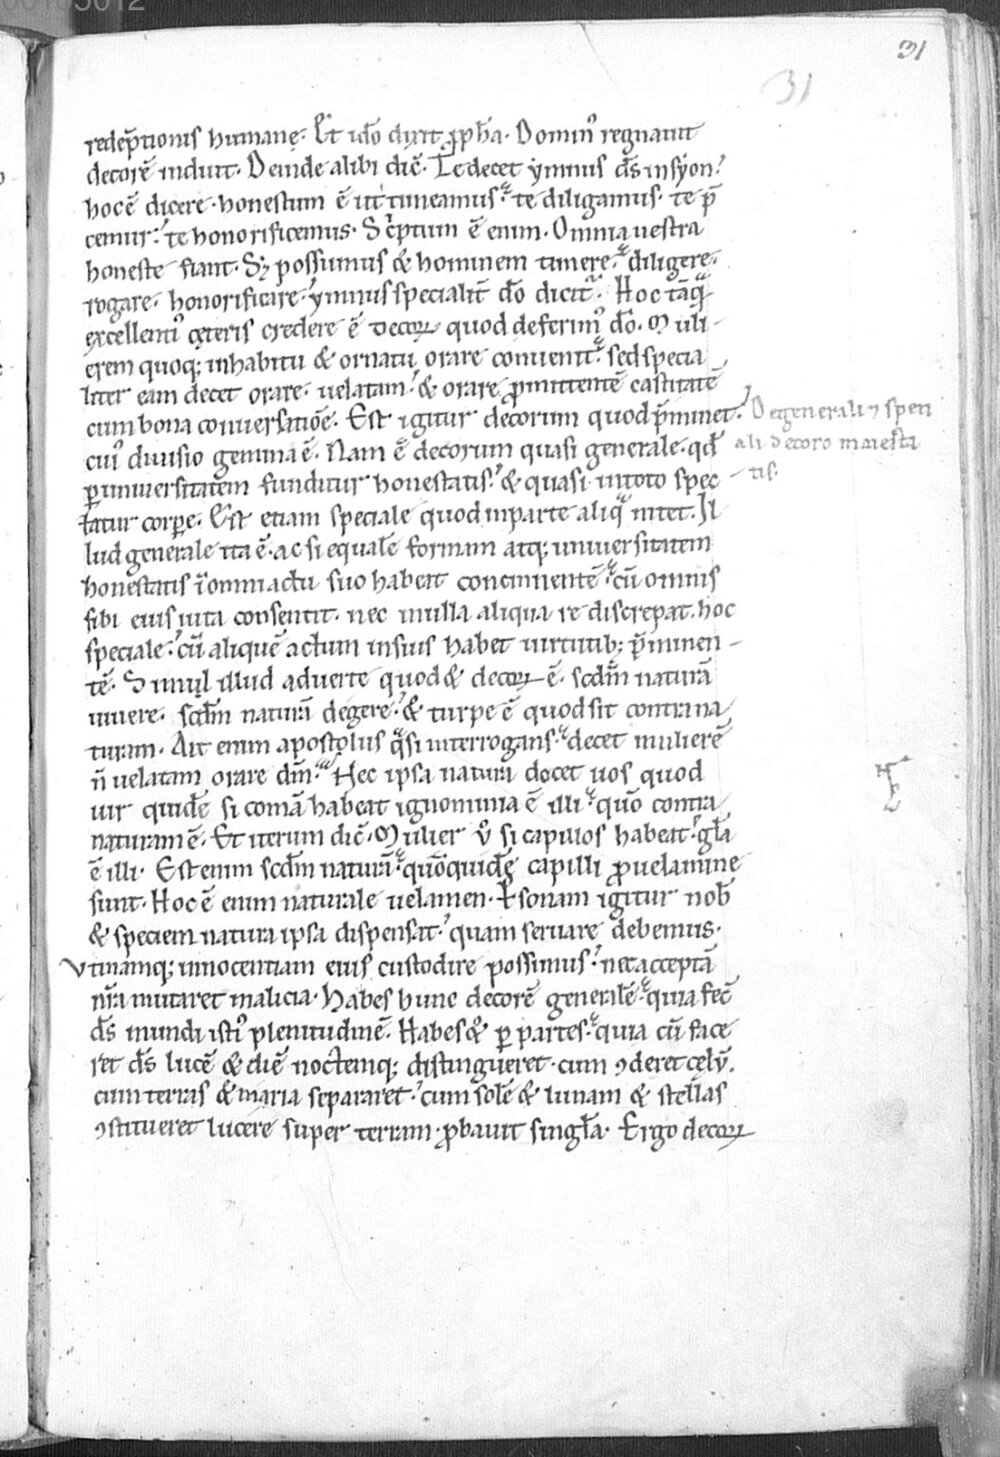 00105012
31
31
redep̄tionis humanę. Et ido̅ dixit ꝓph̅a. Domin᾽ regnauit
decorē induit. Deinde alibi dic̅. Te decet ymnus d̅s in syon.
hoc ē dicere. honestum ē ut timeamus. te diligamus. te p̄
cemur. te honorificemus. Sc̅ptum ē enim. Omnia uestra
honeste fiant. Sꝫ possumus & hominem timere. diligere.
rogare. honorificare. ymnus specialit̅ do̅ dicit᾽. Hoc ta̅q̅
excellenti᾽ cęteris credere ē decoꝝ quod deferim᾽ do̅. Muli-
erem quoqꝫ in habitu & ornatu orare conuenit. sed specia
liter eam decet orare. uelatam. & orare ꝓmittentē castitatē
cum bona conuersatio̅e. Est igitur decorum quod p̄minet.
De generali ⁊ speti
cui᾽ diuisio gemina ē. Nam ē decorum quasi generale. qd̅
ali decoro maiesta
ꝑ uniuersitatem funditur honestatis. & quasi in toto spec
tis.
tatur corꝑe. Est etiam speciale quod in parte aliq̅ nitet. Il
lud generale ita ē. ac si equalē formam atqꝫ uniuersitatem
honestatis i̅ omni actu suo habeat concinnentē. cū omnis
sibi eius uita consentit. nec in ulla aliqua re discrepat. hoc
speciale. cū aliquē actum in suis habet uirtutibꝫ p̄minen-
tē. Simul illud aduerte quod & decoꝝ ē. scd̅m naturā
uiuere. scd̅m naturā degere. & turpe ē quod sit contra na
turam. Ait enim apostolus q̅si interrogans. decet mulierē
n̅ uelatam orare dm̅. Nec ipsa natura docet uos quod
uir quidē si comā habeat ignominia ē illi. quo̅ contra
naturam ē. Et iterum dic̅. Mulier u̅ si capillos habeat. gl̅a
ē illi. Est enim scd̅m naturā. quo̅ quidē capilli ꝓ uelamine
sunt. Hoc ē enim naturale uelamen. Ꝑsonam igitur nob̅
& speciem natura ipsa dispensat. quam seruare debemus.
Vtinamqꝫ innocentiam eius custodire possimus. nec acceptā
nr̅a mutaret malicia. Habes hunc decorē generalē. quia fec̅
d̅s mundi isti᾽ plenitudinē. Habes & ꝑ partes. quia cū face
ret d̅s lucē & diē noctemqꝫ distingueret. cum ꝯderet cęlū.
cum terras & maria separaret. cum solē & lunam & stellas
ꝯstitueret lucere super terram. ꝓbauit singl̅a. Ergo decoꝝ